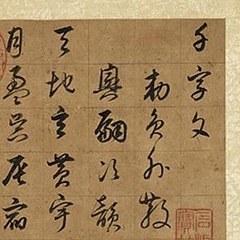 千字文
勅員外散
興嗣次韻
天地玄黃宇
月盈昃辰宿